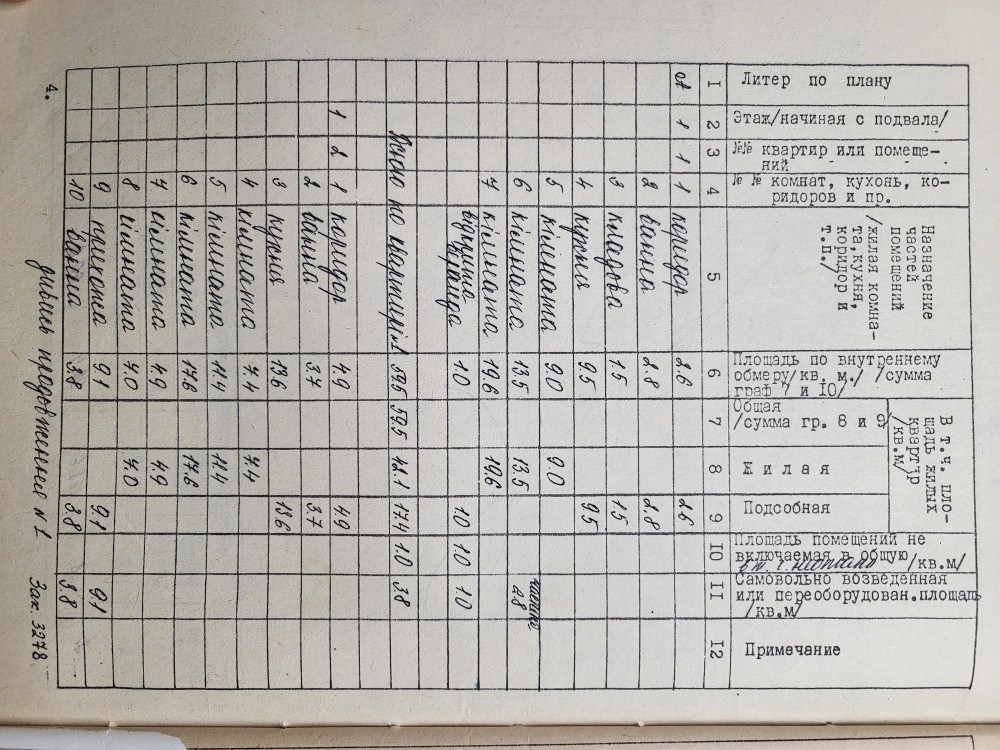 Литер по плану
Этаж/начиная с подвала/
№№ квартир или помеще-
ний
№ № комнат, кухонь, ко-
ридоров и пр.
Назначение
частей
помещений
/жилая комна-
та,кухня,
коридор и
т.п./
Площадь по внутреннему
обмеру/кв. м./ /сумма
граф 7 и 10/
В т.ч. пло-
щадь жилых
квартир
/кв.м/
Общая
/сумма гр. 8 и 9/
Жилая
Подсобная
Площадь помещений не
включаемая в общую /кв.м/
Самовольно возведенная
или переоборудован.площадь
/кв.м/
Примечание
1 2 3 4 5 6 7 8 9 10 11 12
А 1 1 1 коридор 2.6 2.6
2 ванна 2.8 2.8
3 кладова 1.5 1.5
4 кухня 9.5 9.5
5 кімната 9.0 9.0
6 кімната 13.5 13.5 2.8
7 кімната 19.6 19.6
веранда 1.0 1.0 1.0 1.0
по квартирі 1 59.5 59.5 42.1 17.4 1.0 3.8
1 2 1 коридор 4.9 4.9
2 ванна 3.7 3.7
3 кухня 13.6 13.6
4 кімната 7.4 7.4
5 кімната 11.4 11.4
6 кімната 17.6 17.6
7 кімната 4.9 4.9
8 кімната 7.0 7.0
9 прихожа 9.1 9.1 9.1
10 ванна 3.8 3.8 3.8
4.
дивись продовження N 1
Зак. 3278